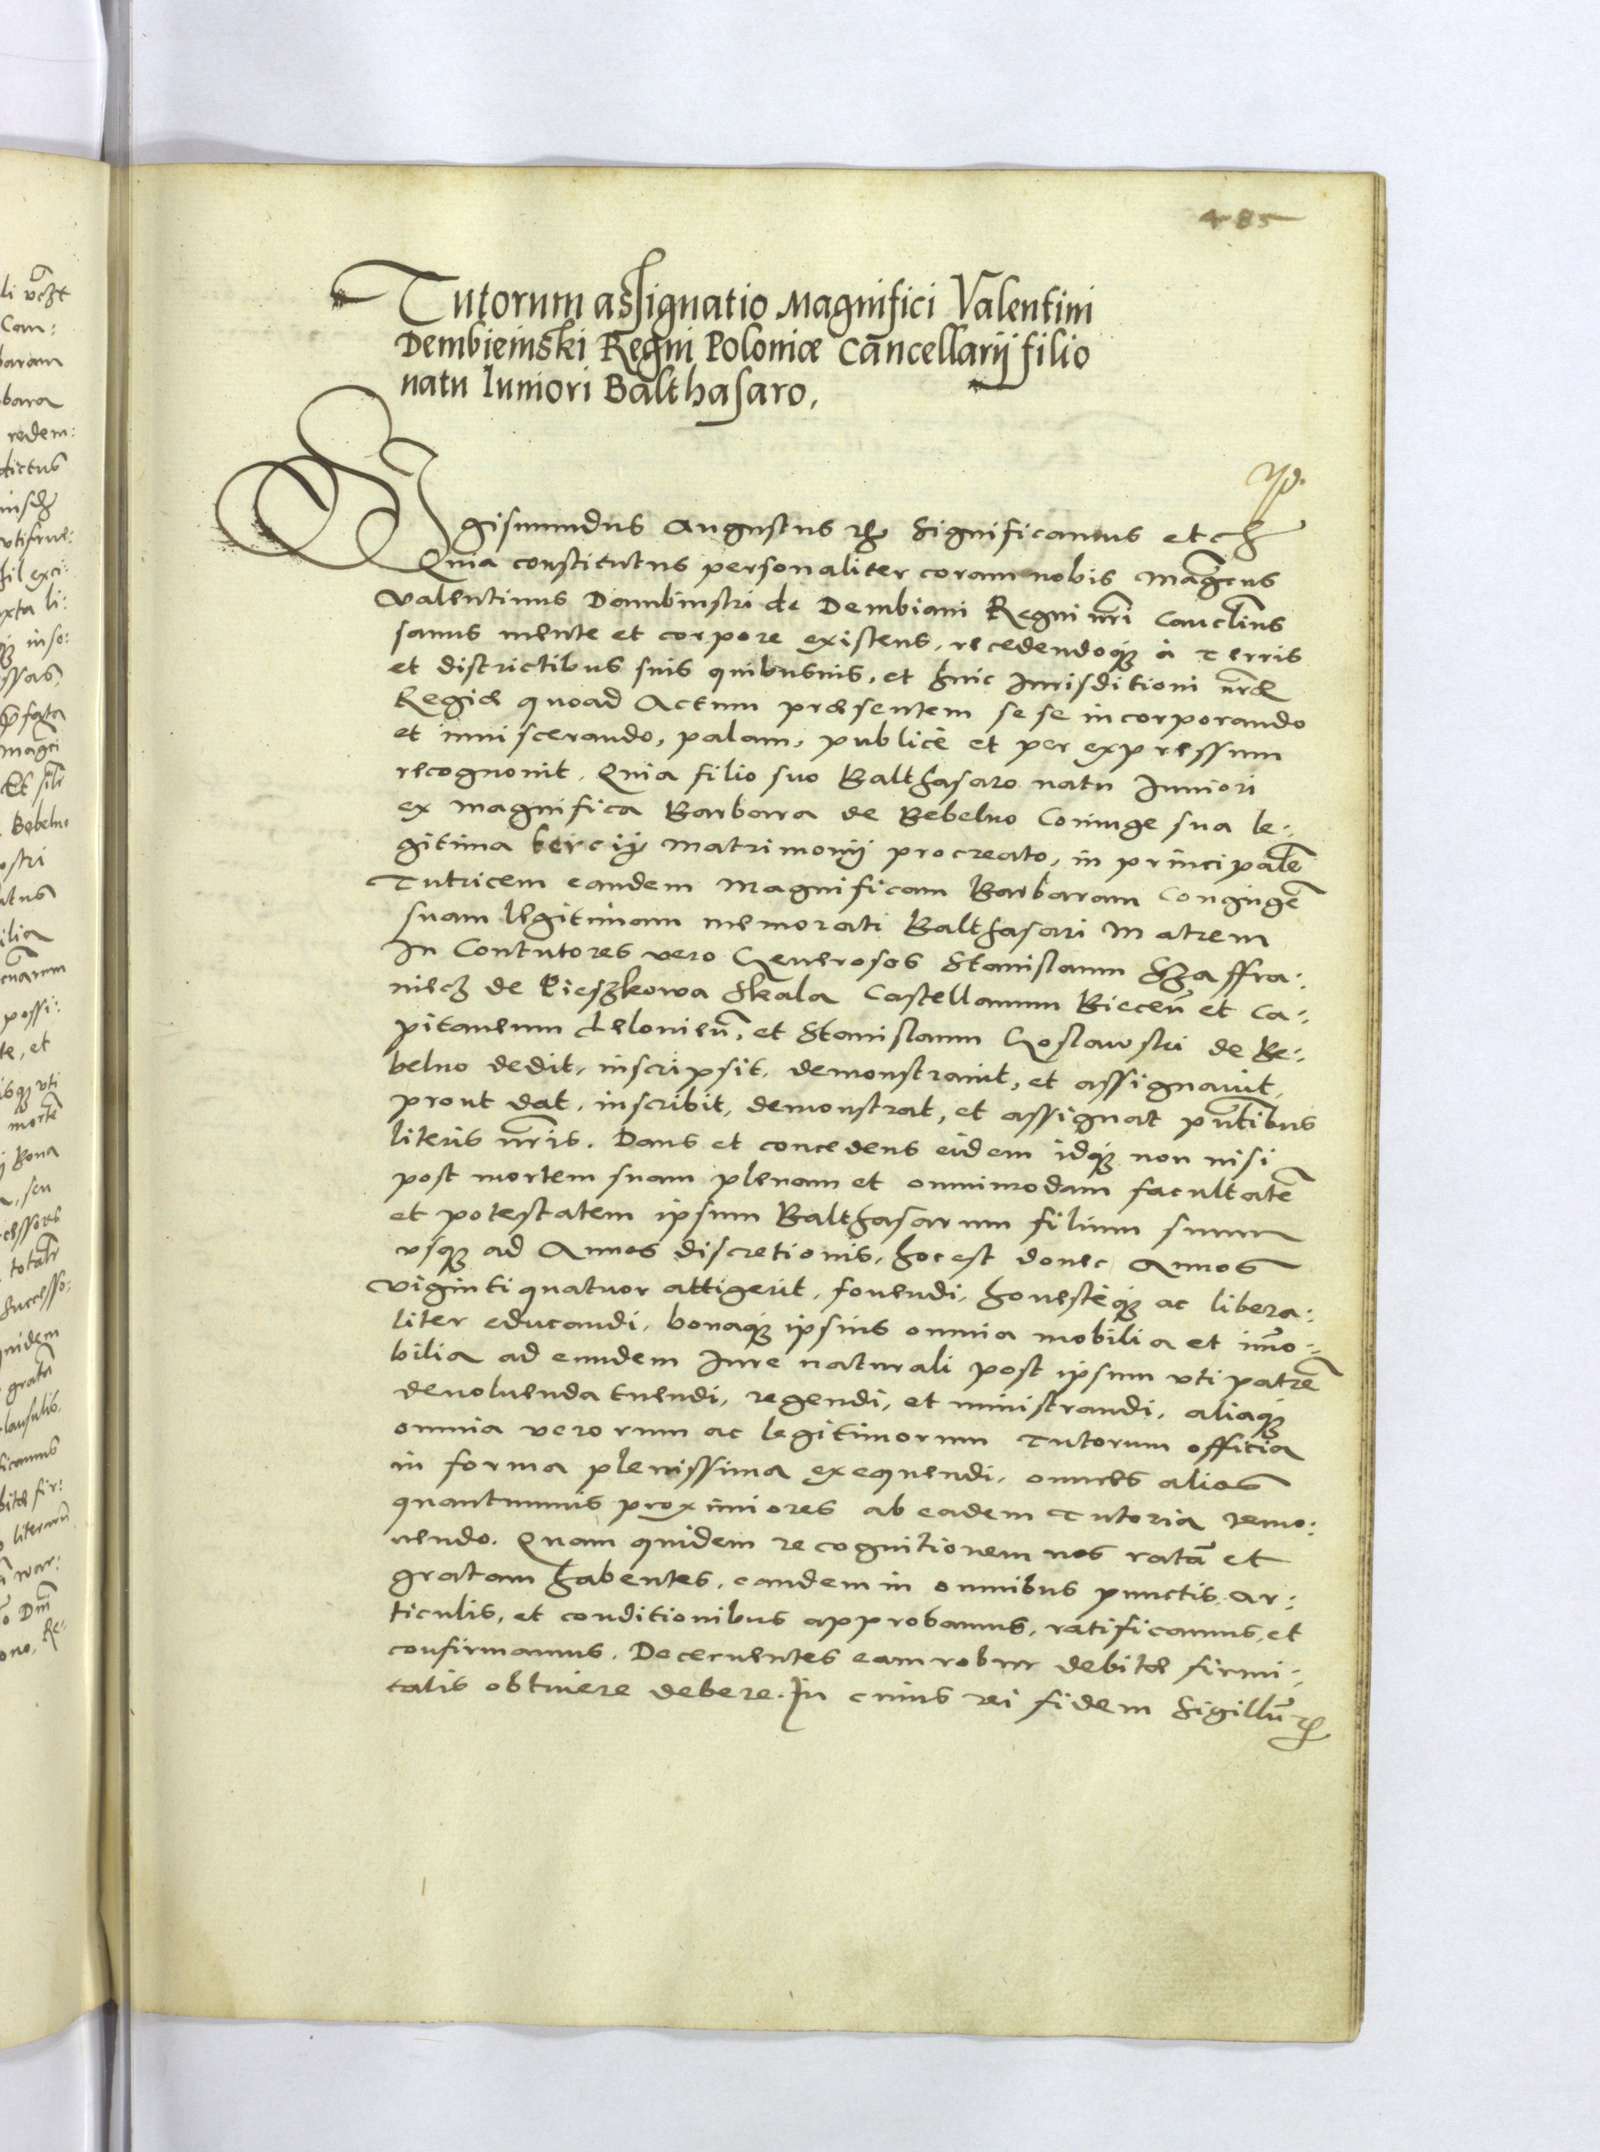 485
Tutorum assignatio Magnifici Valentini
Dembieinski Regni Poloniæ Cancellarij filio
natu Iuniori Balthasaro.
Sigismundus Augustus etc Significamus etc
Quia constitutus personaliter coram nobis Magcus
Valentinus Dambinski de Dembiani Regni nri Canclius
sanus mente et corpore existens, recedendoq à Terris
et districtibus suis quibusuis, et huic Jurisditioni nræ
Regiæ quoad Actum præsentem sese incorporando
et inuiscerando, palam, publicè et per expressum
recognouit. Quia filio suo Balthasaro natu Juniori
ex Magnifica Barbara de Bebelno Coniuge sua le:
gitima tercij Matrimonij procreato, in principalē
Tutricem eandem Magnificam Barbaram Coniugē
suam legitimam memorati Balthasari Matrem
In Contutores vero Generosos Stanislaum Szaffra:
niecz de Pieszkowa Skala Castellanum Biecen et Ca:
pitaneum Lelouien, et Stanislaum Goslawski de Be:
belno dedit, inscripsit, demonstrauit, et assignauit,
prout dat, inscribit, demonstrat, et assignat pntibus
literis nris. Dans et concedens eidem idq non nisi
post mortem suam plenam et omnimodam facultatē
et potestatem ipsum Balthasarum filium suum
vsq ad Annos discretionis, hoc est donec Annos
viginti quatuor attigerit, fouendi, honesteq ac libera:
liter educandi, bonaq ipsius omnia mobilia et imo:
bilia ad eundem Jure naturali post ipsum vti patrē
deuoluenda tuendi, regendi, et ministrandi, aliaq
omnia verorum ac legitimorum Tutorum officia
in forma plenissima exequendi, omnes alios
quantumuis proximiores ab eadem Tutoria remo:
uendo. Quam quidem recognitionem nos ratā et
gratam habentes, eandem in omnibus punctis, ar:
ticulis, et conditionibus approbamus, ratificamus, et
confirmamus. Decernentes eam robur debitæ firmi:
tatis obtinere debere. In cuius rei fidem Sigillū etc